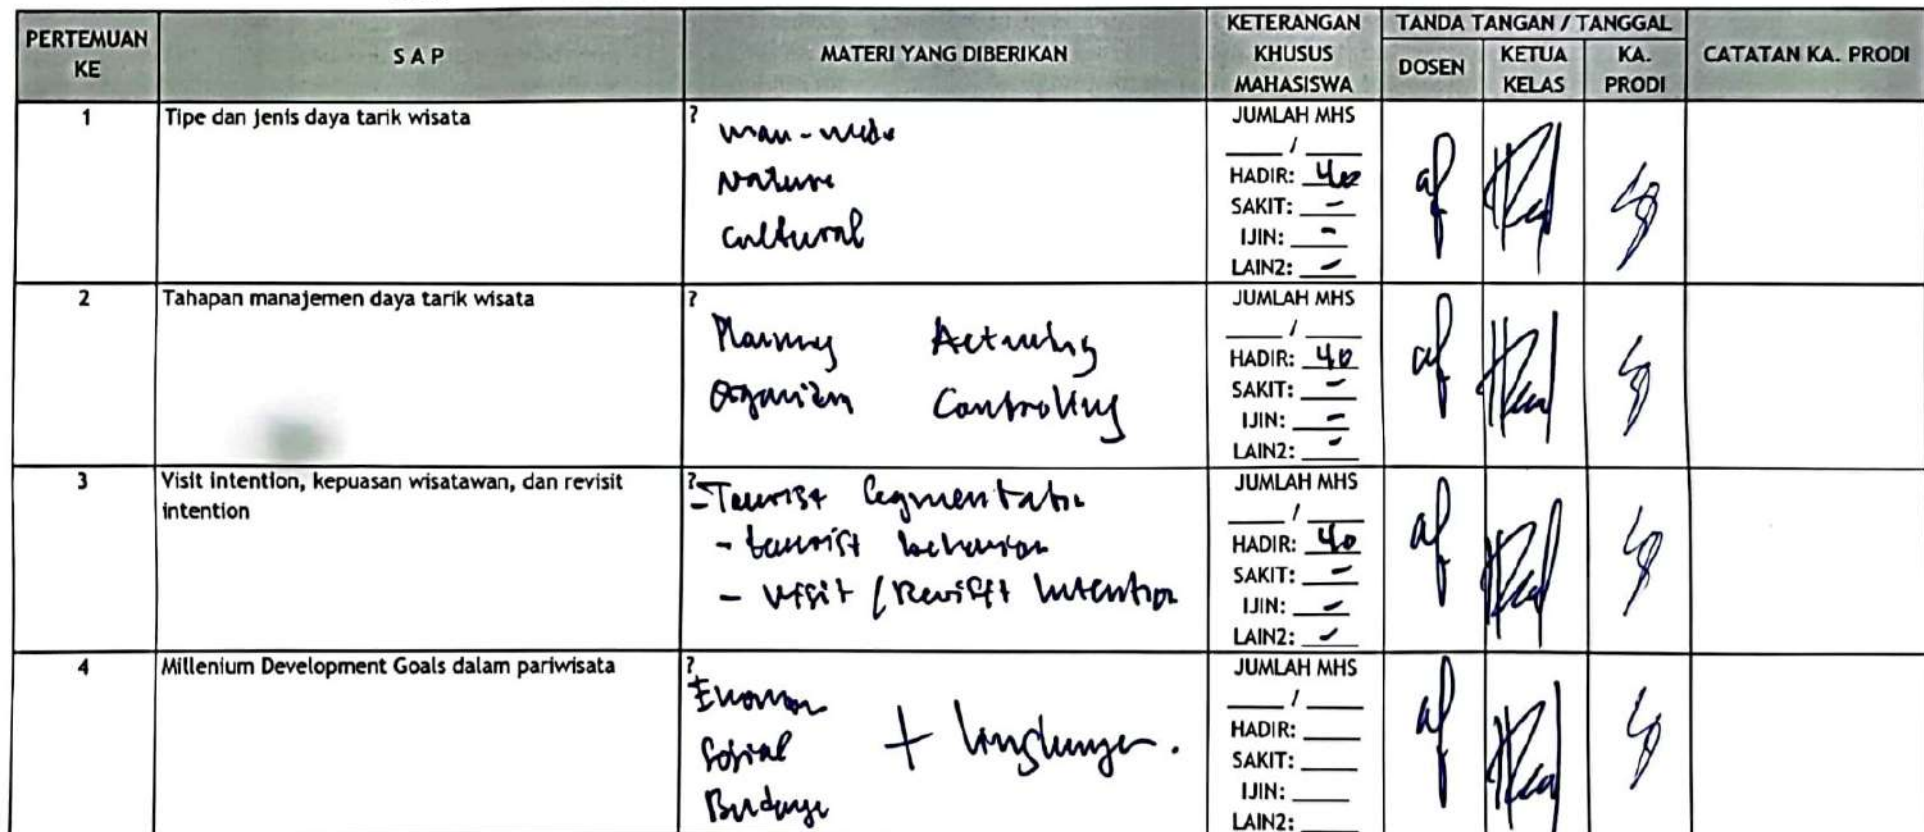 PERTEMUAN KE
S A P
MATERI YANG DIBERIKAN
KETERANGAN KHUSUS MAHASISWA
TANDA TANGAN / TANGGAL
DOSEN
KETUA KELAS
KA. PRODI
CATATAN KA. PRODI
1
Tipe dan jenis daya tarik wisata
?
man-made
Nature
Cultural
JUMLAH MHS
___ / ___
HADIR: 40
SAKIT: -
IJIN: -
LAIN2: -
2
Tahapan manajemen daya tarik wisata
?
Planning Actuating
Organizin Controlling
JUMLAH MHS
___ / ___
HADIR: 40
SAKIT: -
IJIN: -
LAIN2: -
3
Visit intention, kepuasan wisatawan, dan revisit
intention
?
- Tourist Segmentation
- tourist behavior
- Visit / Revisit Intention
JUMLAH MHS
___ / ___
HADIR: 40
SAKIT: -
IJIN: -
LAIN2: -
4
Millenium Development Goals dalam pariwisata
?
Ekonomi
Sosial + lingkungan.
Budaya
JUMLAH MHS
___ / ___
HADIR: ___
SAKIT: ___
IJIN: ___
LAIN2: ___